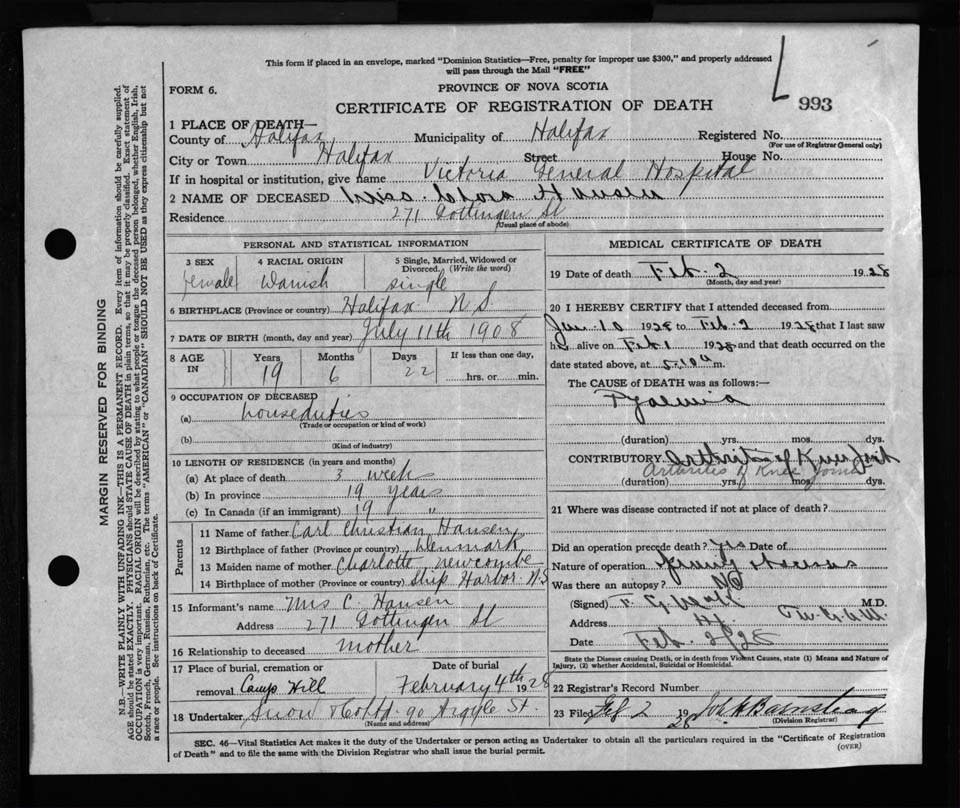 This form if placed in an envelope, marked "Dominion Statistics—Free, penalty for improper use $300," and properly addressed
will pass through the Mail "FREE"
FORM 6.
PROVINCE OF NOVA SCOTIA
CERTIFICATE OF REGISTRATION OF DEATH
993
1 PLACE OF DEATH—
County of Halifax Municipality of Halifax Registered No.
(For use of Registrar General only)
City or Town Halifax Street House No.
If in hospital or institution, give name Victoria General Hospital
2 NAME OF DECEASED Miss Hansen
Residence 271 Gottingen St
(Usual place of abode)
PERSONAL AND STATISTICAL INFORMATION
3 SEX 4 RACIAL ORIGIN 5 Single, Married, Widowed or
Divorced. (Write the word)
Female Danish single
6 BIRTHPLACE (Province or country) Halifax N S.
7 DATE OF BIRTH (month, day and year) July 11th 1908
8 AGE IN Years Months Days If less than one day,
19 6 22 hrs. or min.
9 OCCUPATION OF DECEASED
(a) houseduties
(Trade or occupation or kind of work)
(b)
(Kind of industry)
10 LENGTH OF RESIDENCE (in years and months)
(a) At place of death 3 week
(b) In province 19 years
(c) In Canada (if an immigrant) 19 "
Parents
11 Name of father Carl Christian Hansen
12 Birthplace of father (Province or country) Denmark
13 Maiden name of mother Charlotte Newcombe
14 Birthplace of mother (Province or country) Ship Harbor N.S
15 Informant's name Mrs C. Hansen
Address 271 Gottingen St
16 Relationship to deceased mother
17 Place of burial, cremation or Date of burial
removal Camp Hill February 4th 1928
18 Undertaker Snow & Co Ltd. 90 Argyle St.
(Name and address)
MEDICAL CERTIFICATE OF DEATH
19 Date of death Feb. 2 1928
(Month, day and year)
20 I HEREBY CERTIFY that I attended deceased from
Jan. 10 1928 to Feb. 2 1928 that I last saw
h alive on Feb 1 1928 and that death occurred on the
date stated above, at 5.10 a m.
The CAUSE OF DEATH was as follows:—
Pyaemia
(duration) yrs. mos. dys.
CONTRIBUTORY Arthritis of Knee Joint
Arthritis of Knee Joint
(duration) yrs. mos. dys.
21 Where was disease contracted if not at place of death?
Did an operation precede death? yrs Date of
Nature of operation
Was there an autopsy? No
(Signed) F. G. M.D.
Address
Date Feb. 2/28
State the Disease causing Death, or in death from Violent Causes, state (1) Means and Nature of
Injury, (2) whether Accidental, Suicidal or Homicidal.
22 Registrar's Record Number
23 Filed Feb 2 1928 John A Barnstead
(Division Registrar)
SEC. 46—Vital Statistics Act makes it the duty of the Undertaker or person acting as Undertaker to obtain all the particulars required in the "Certificate of Registration
of Death" and to file the same with the Division Registrar who shall issue the burial permit.
(OVER)
MARGIN RESERVED FOR BINDING
N.B.—WRITE PLAINLY WITH UNFADING INK—THIS IS A PERMANENT RECORD. Every item of information should be carefully supplied.
AGE should be stated EXACTLY. PHYSICIANS should STATE CAUSE OF DEATH in plain terms, so that it may be properly classified. Exact statement of
OCCUPATION is very important. RACIAL ORIGIN will be described by stating to what people or tongue the deceased person belonged, whether English, Irish,
Scotch, French, German, Russian, Ruthenian, etc. The terms "AMERICAN" or "CANADIAN" SHOULD NOT BE USED as they express citizenship but not
a race or people. See instructions on back of Certificate.